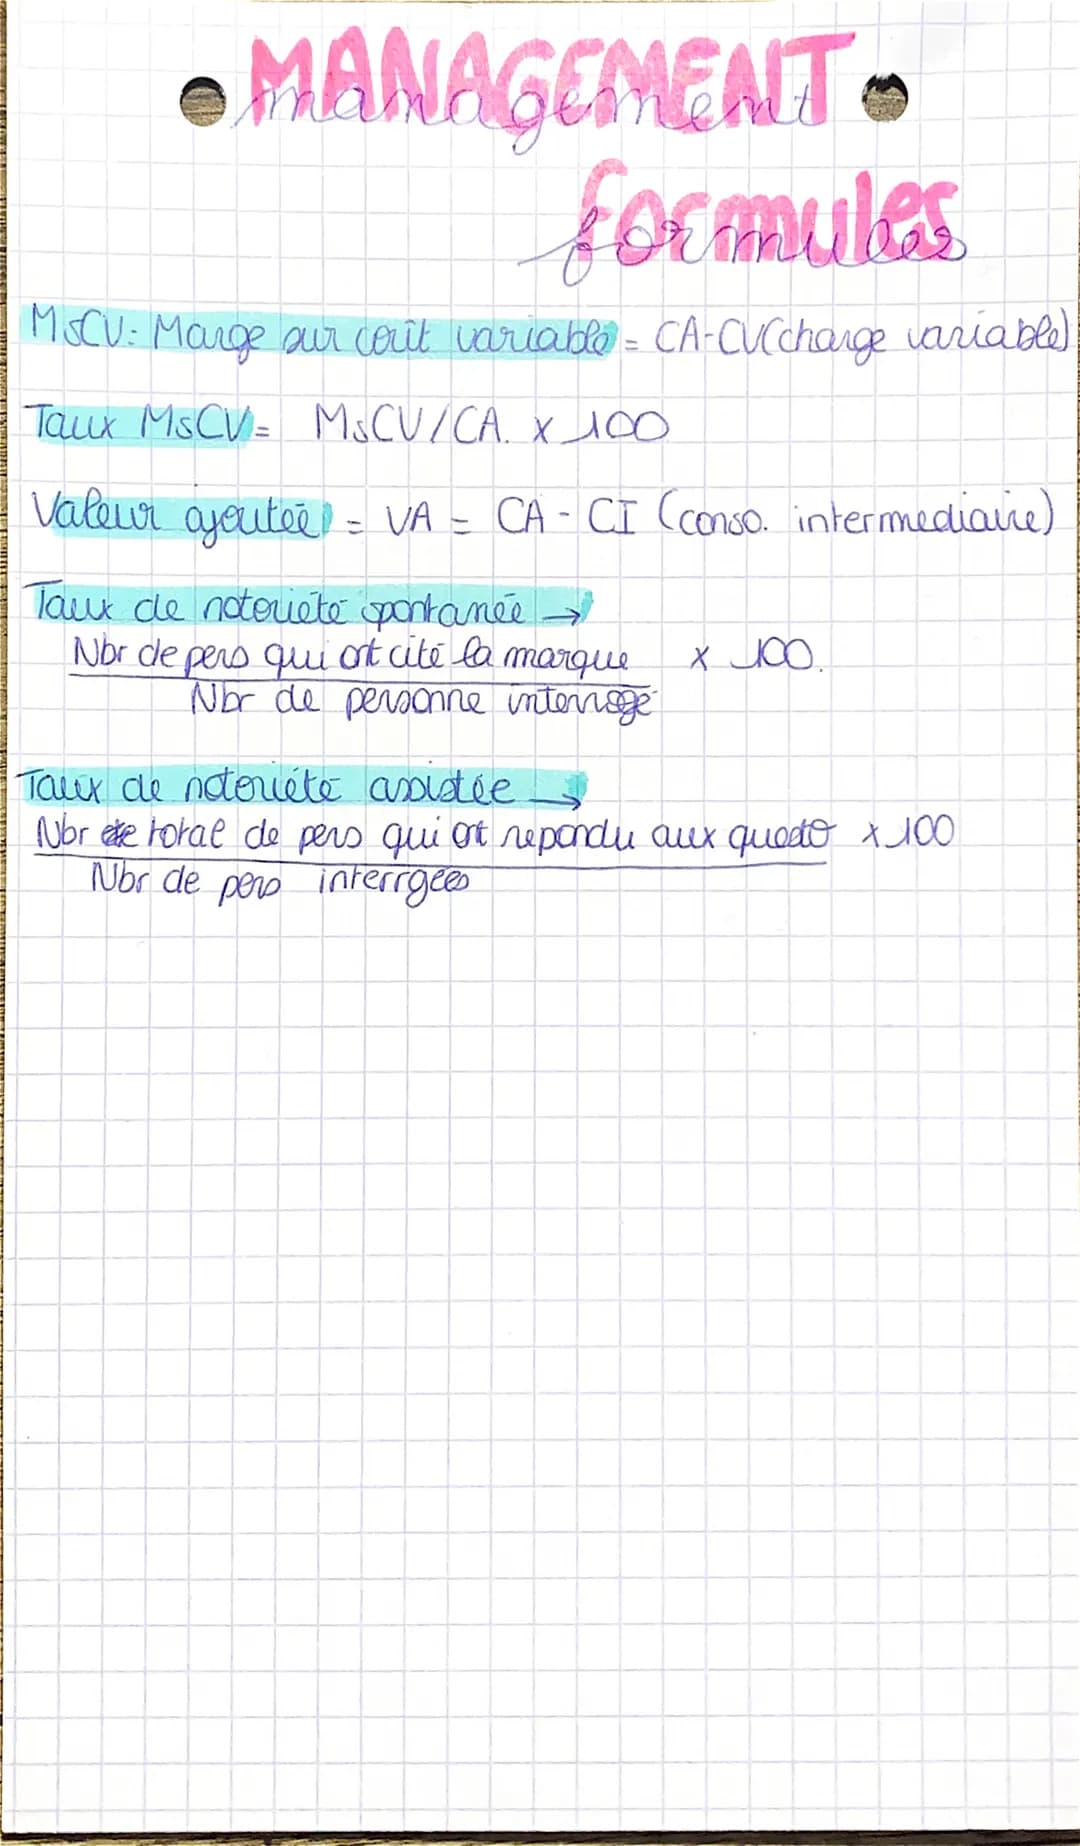 MANAGEMENT
management
formules
formules
MSCV: Marge sur coût variable = CA-CV(charge variable)
Taux MsCV = MsCV/CA. x 100
Valeur ajoutée = VA = CA - CI (conso. intermediaire)
Taux de notoriété spontanée →
Nbr de pers qui ont cité la marque x 100.
Nbr de personne interrogé
Taux de notoriété assistée →
Nbr total de pers qui ont repondu aux quest° x 100
Nbr de pers interrgées